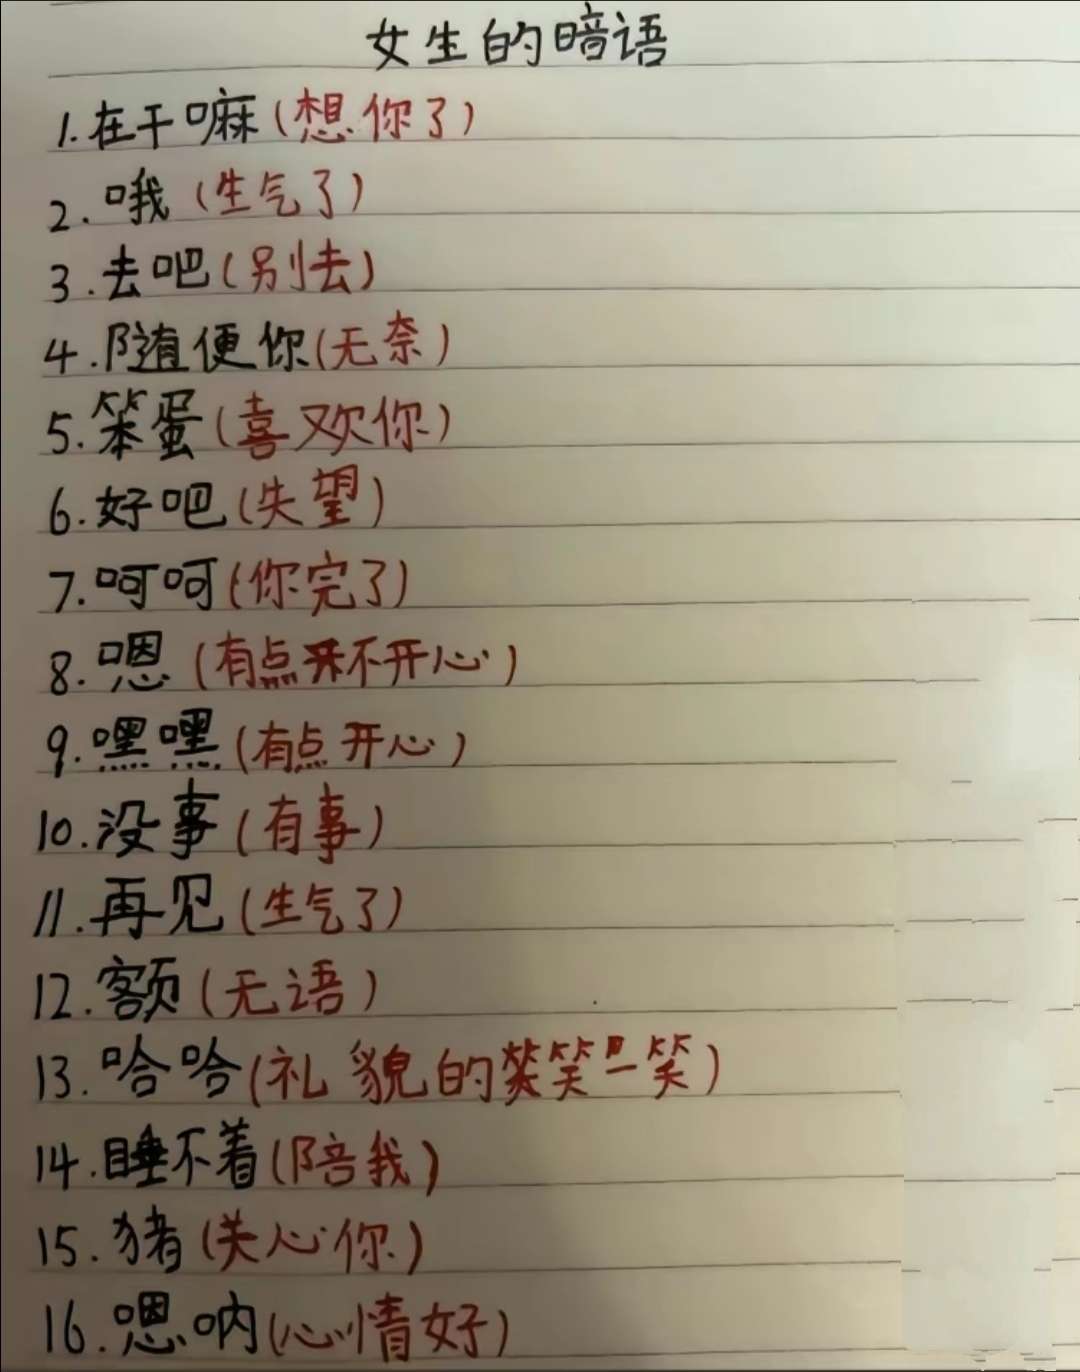 女生的暗语
1.在干嘛(想你了)
2.哦(生气了)
3.去吧(别去)
4.随便你(无奈)
5.笨蛋(喜欢你)
6.好吧(失望)
7.呵呵(你完了)
8.嗯(有点不开心)
9.嘿嘿(有点开心)
10.没事(有事)
11.再见(生气了)
12.额(无语)
13.哈哈(礼貌的笑一笑)
14.睡不着(陪我)
15.猪(关心你)
16.嗯呐(心情好)